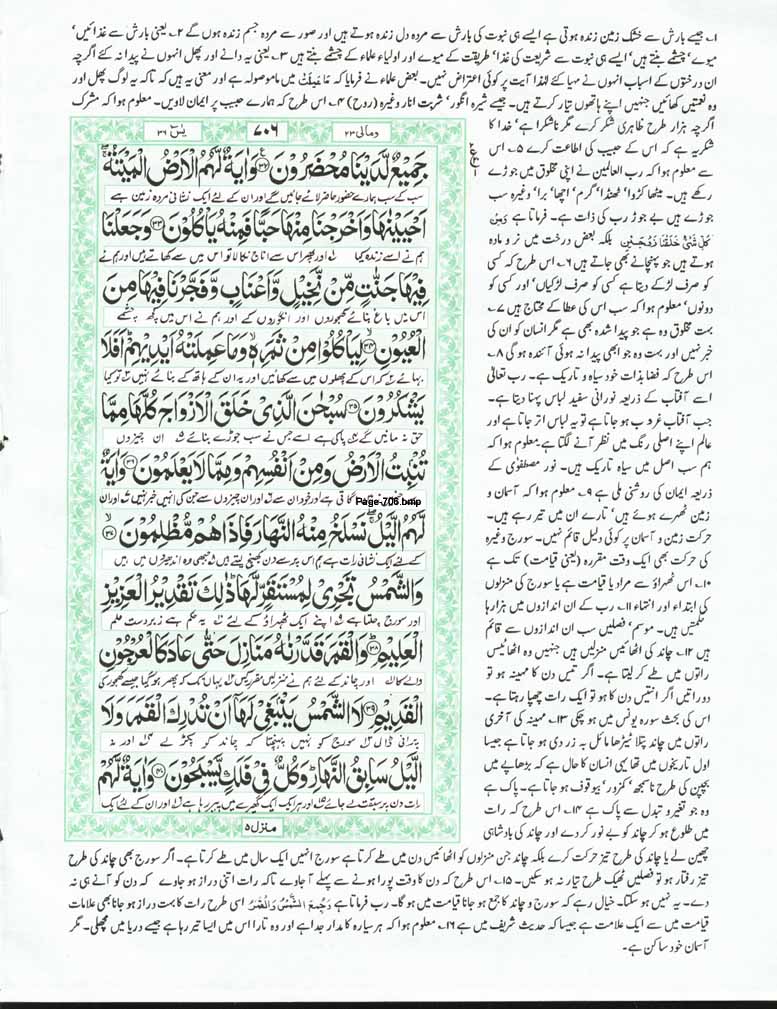 ۱۔ جیسے بارش سے خشک زمین زندہ ہوتی ہے ایسے ہی نبوت کی بارش سے مردہ دل زندہ ہوتے ہیں اور صور سے مردہ جسم زندہ ہوں گے ۲۔ یعنی بارش سے غذائیں'
میوے' چشمے بنتے ہیں' ایسے ہی نبوت سے شریعت کی غذا' طریقت کے میوے اور اولیاء علماء کے چشمے بنتے ہیں ۳۔ یعنی یہ دانے اور پھل انہوں نے پیدا نہ کئے اگرچہ
ان درختوں کے اسباب انہوں نے مہیا کئے لہٰذا آیت پر کوئی اعتراض نہیں۔ بعض علماء نے فرمایا کہ مَاعَمِلَتْ میں ما موصولہ ہے اور معنی یہ ہیں کہ تاکہ یہ لوگ پھل اور
وہ نعمتیں کھائیں جنہیں اپنے ہاتھوں تیار کرتے ہیں۔ جیسے شیرہ انگور' شربت انار وغیرہ (روح) ۴۔ اس طرح کہ ہمارے حبیب پر ایمان لاویں۔ معلوم ہوا کہ مشرک
اگرچہ ہزار طرح ظاہری شکر کرے مگر ناشکرا ہے' خدا کا
شکریہ ہے کہ اس کے حبیب کی اطاعت کرے ۵۔ اس
سے معلوم ہوا کہ رب العالمین نے اپنی مخلوق میں جوڑے
رکھے ہیں۔ میٹھا کڑوا' ٹھنڈا' گرم' اچھا' برا' وغیرہ سب
جوڑے ہیں بے جوڑ رب کی ذات ہے۔ فرماتا ہے وَمِنْ
كُلِّ شَيْءٍ خَلَقْنَا زَوْجَيْنِ بلکہ بعض درخت میں نر و مادہ
ہوتے ہیں جو پہنچانے بھی جاتے ہیں ۶۔ اس طرح کہ کسی
کو صرف لڑکے دیتا ہے کسی کو صرف لڑکیاں' اور کسی کو
دونوں' معلوم ہوا کہ سب اس کی عطا کے محتاج ہیں ۷۔
بہت مخلوق وہ ہے جو پیدا شدہ بھی ہے مگر انسان کو ان کی
خبر نہیں اور بہت وہ جو ابھی پیدا نہ ہوئی آئندہ ہوگی ۸۔
اس طرح کہ فضا بذات خود سیاہ و تاریک ہے۔ رب تعالیٰ
اسے آفتاب کے ذریعہ نورانی سفید لباس پہنا دیتا ہے۔
جب آفتاب غروب ہو جاتا ہے تو یہ لباس اتر جاتا ہے اور
عالم اپنے اصلی رنگ میں نظر آنے لگتا ہے معلوم ہوا کہ
ہم سب اصل میں سیاہ تاریک ہیں۔ نور مصطفوی کے
ذریعہ ایمان کی روشنی ملی ہے ۹۔ معلوم ہوا کہ آسمان و
زمین ٹھہرے ہوئے ہیں' تارے ان میں تیر رہے ہیں۔
حرکت زمین و آسمان پر کوئی دلیل قائم نہیں۔ سورج وغیرہ
کی حرکت بھی ایک وقت مقررہ (یعنی قیامت) تک ہے
۱۰۔ اس ٹھہراؤ سے مراد یا قیامت ہے یا سورج کی منزلوں
کی ابتداء اور انتہاء ۱۱۔ رب کے ان اندازوں میں ہزارہا
حکمتیں ہیں۔ موسم' فصلیں سب ان اندازوں سے قائم
ہیں ۱۲۔ چاند کی اٹھائیس منزلیں ہیں جنہیں وہ اٹھائیس
راتوں میں طے کر لیتا ہے۔ اگر تیس دن کا مہینہ ہو تو
دو راتیں اگر انتیس دن کا ہو تو ایک رات چھپا رہتا ہے۔
اس کی بحث سورہ یونس میں ہو چکی ۱۳۔ مہینہ کی آخری
راتوں میں چاند پتلا ٹیڑھا مائل بہ زردی ہو جاتا ہے جیسا
اول تاریخوں میں تھا یہی انسان کا حال ہے کہ بڑھاپے میں
بچپن کی طرح ناسمجھ' کمزور' بیوقوف ہو جاتا ہے۔ پاک ہے
وہ جو تغیر و تبدل سے پاک ہے ۱۴۔ اس طرح کہ رات
میں طلوع ہو کر چاند کو بے نور کر دے اور چاند کی بادشاہی
چھین لے یا چاند کی طرح تیز حرکت کرے بلکہ چاند جن منزلوں کو اٹھائیس دن میں طے کرتا ہے سورج انہیں ایک سال میں طے کرتا ہے۔ اگر سورج بھی چاند کی طرح
تیز رفتار ہو تو فصلیں ٹھیک طرح تیار نہ ہو سکیں۔ ۱۵۔ اس طرح کہ دن کا وقت پورا ہونے سے پہلے آ جاوے تاکہ رات اتنی دراز ہو جاوے کہ دن کو آنے ہی نہ
دے۔ یہ نہیں ہو سکتا۔ خیال رہے کہ سورج و چاند کا جمع ہو جانا قیامت میں ہوگا۔ رب فرماتا ہے وَجُمِعَ الشَّمْسُ وَالْقَمَرُ اسی طرح رات کا بہت دراز ہو جانا بھی علامات
قیامت میں سے ایک علامت ہے جیسا کہ حدیث شریف میں ہے ۱۶۔ معلوم ہوا کہ ہر سیارہ کا مدار جدا ہے اور وہ تارا اس میں ایسا تیر رہا ہے جیسے دریا میں مچھلی۔ مگر
آسمان خود ساکن ہے۔
ومالی ۲۳
۷۰۶
یٰسٓ ۳۶
جَمِيعٌ لَّدَيْنَا مُحْضَرُونَ ﴿۳۲﴾ وَآيَةٌ لَّهُمُ الْأَرْضُ الْمَيْتَةُ ۚ
سب کے سب ہمارے حضور حاضر لائے جائیں گے اور ان کے لئے ایک نشانی مردہ زمین ہے
أَحْيَيْنَاهَا وَأَخْرَجْنَا مِنْهَا حَبًّا فَمِنْهُ يَأْكُلُونَ ﴿۳۳﴾ وَجَعَلْنَا
ہم نے اسے زندہ کیا اور پھر اس سے اناج نکالا تو اس میں سے کھاتے ہیں اور ہم نے
فِيهَا جَنَّاتٍ مِّن نَّخِيلٍ وَأَعْنَابٍ وَفَجَّرْنَا فِيهَا مِنَ
اس میں باغ بنائے کھجوروں اور انگوروں کے اور ہم نے اس میں کچھ چشمے
الْعُيُونِ ﴿۳۴﴾ لِيَأْكُلُوا مِن ثَمَرِهِ وَمَا عَمِلَتْهُ أَيْدِيهِمْ ۖ أَفَلَا
بہائے کہ اس کے پھلوں میں سے کھائیں اور یہ ان کے ہاتھ کے بنائے نہیں تو کیا
يَشْكُرُونَ ﴿۳۵﴾ سُبْحَانَ الَّذِي خَلَقَ الْأَزْوَاجَ كُلَّهَا مِمَّا
حق نہ مانیں گے پاکی ہے اسے جس نے سب جوڑے بنائے ان چیزوں
تُنبِتُ الْأَرْضُ وَمِنْ أَنفُسِهِمْ وَمِمَّا لَا يَعْلَمُونَ ﴿۳۶﴾ وَآيَةٌ
اگاتی ہے اور خود ان سے اور ان چیزوں سے جن کی انہیں خبر نہیں اور ان
Page-706.bmp
لَّهُمُ اللَّيْلُ نَسْلَخُ مِنْهُ النَّهَارَ فَإِذَا هُم مُّظْلِمُونَ ﴿۳۷﴾
کے لئے ایک نشانی رات ہے ہم اس پر سے دن کھینچ لیتے ہیں جبھی وہ اندھیروں میں ہیں
وَالشَّمْسُ تَجْرِي لِمُسْتَقَرٍّ لَّهَا ۚ ذَٰلِكَ تَقْدِيرُ الْعَزِيزِ
اور سورج چلتا ہے اپنے ایک ٹھہراؤ کے لئے یہ حکم ہے زبردست علم
الْعَلِيمِ ﴿۳۸﴾ وَالْقَمَرَ قَدَّرْنَاهُ مَنَازِلَ حَتَّىٰ عَادَ كَالْعُرْجُونِ
والے کا اور چاند کے لئے ہم نے منزلیں مقرر کیں یہاں تک کہ پھر ہو گیا جیسے کھجور کی
الْقَدِيمِ ﴿۳۹﴾ لَا الشَّمْسُ يَنبَغِي لَهَا أَن تُدْرِكَ الْقَمَرَ وَلَا
پرانی ڈال سورج کو نہیں پہنچتا کہ چاند کو پکڑ لے اور نہ
اللَّيْلُ سَابِقُ النَّهَارِ ۚ وَكُلٌّ فِي فَلَكٍ يَسْبَحُونَ ﴿۴۰﴾ وَآيَةٌ لَّهُمْ
رات دن پر سبقت لے جائے اور ہر ایک ایک گھیرے میں پیر رہا ہے اور ان کے لئے ایک
منزل ۵